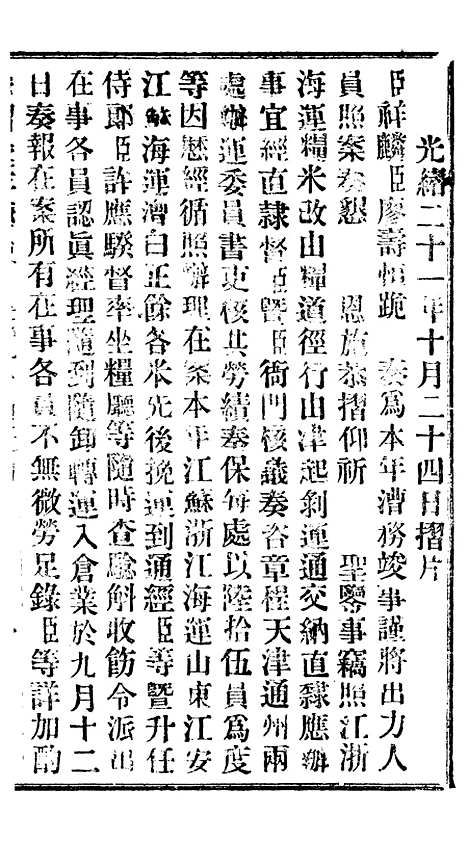 光緒二十一年十月二十四日摺片
臣祥麟臣廖壽恒跪　奏爲本年漕務竣事謹將出力人
員照案奏懇　恩施恭摺仰祈　聖鑒事竊照江浙
海運糧米改由糧道徑行由津起剝運通交納直隸應辦
事宜經直隸督臣暨臣衙門核議奏咨章程天津通州兩
處辦運委員書吏核其勞績奏保每處以陸拾伍員爲度
等因歷經循照辦理在案本年江蘇浙江海運山東江安
江蘇海運漕白正餘各米先後挽運到通經臣等暨升任
侍郎臣許應騤督率坐糧廳等隨時查驗斛收飭令派出
在事各員認眞經理隨到隨卸轉運入倉業於九月十二
日奏報在案所有在事各員不無微勞足錄臣等詳加酌